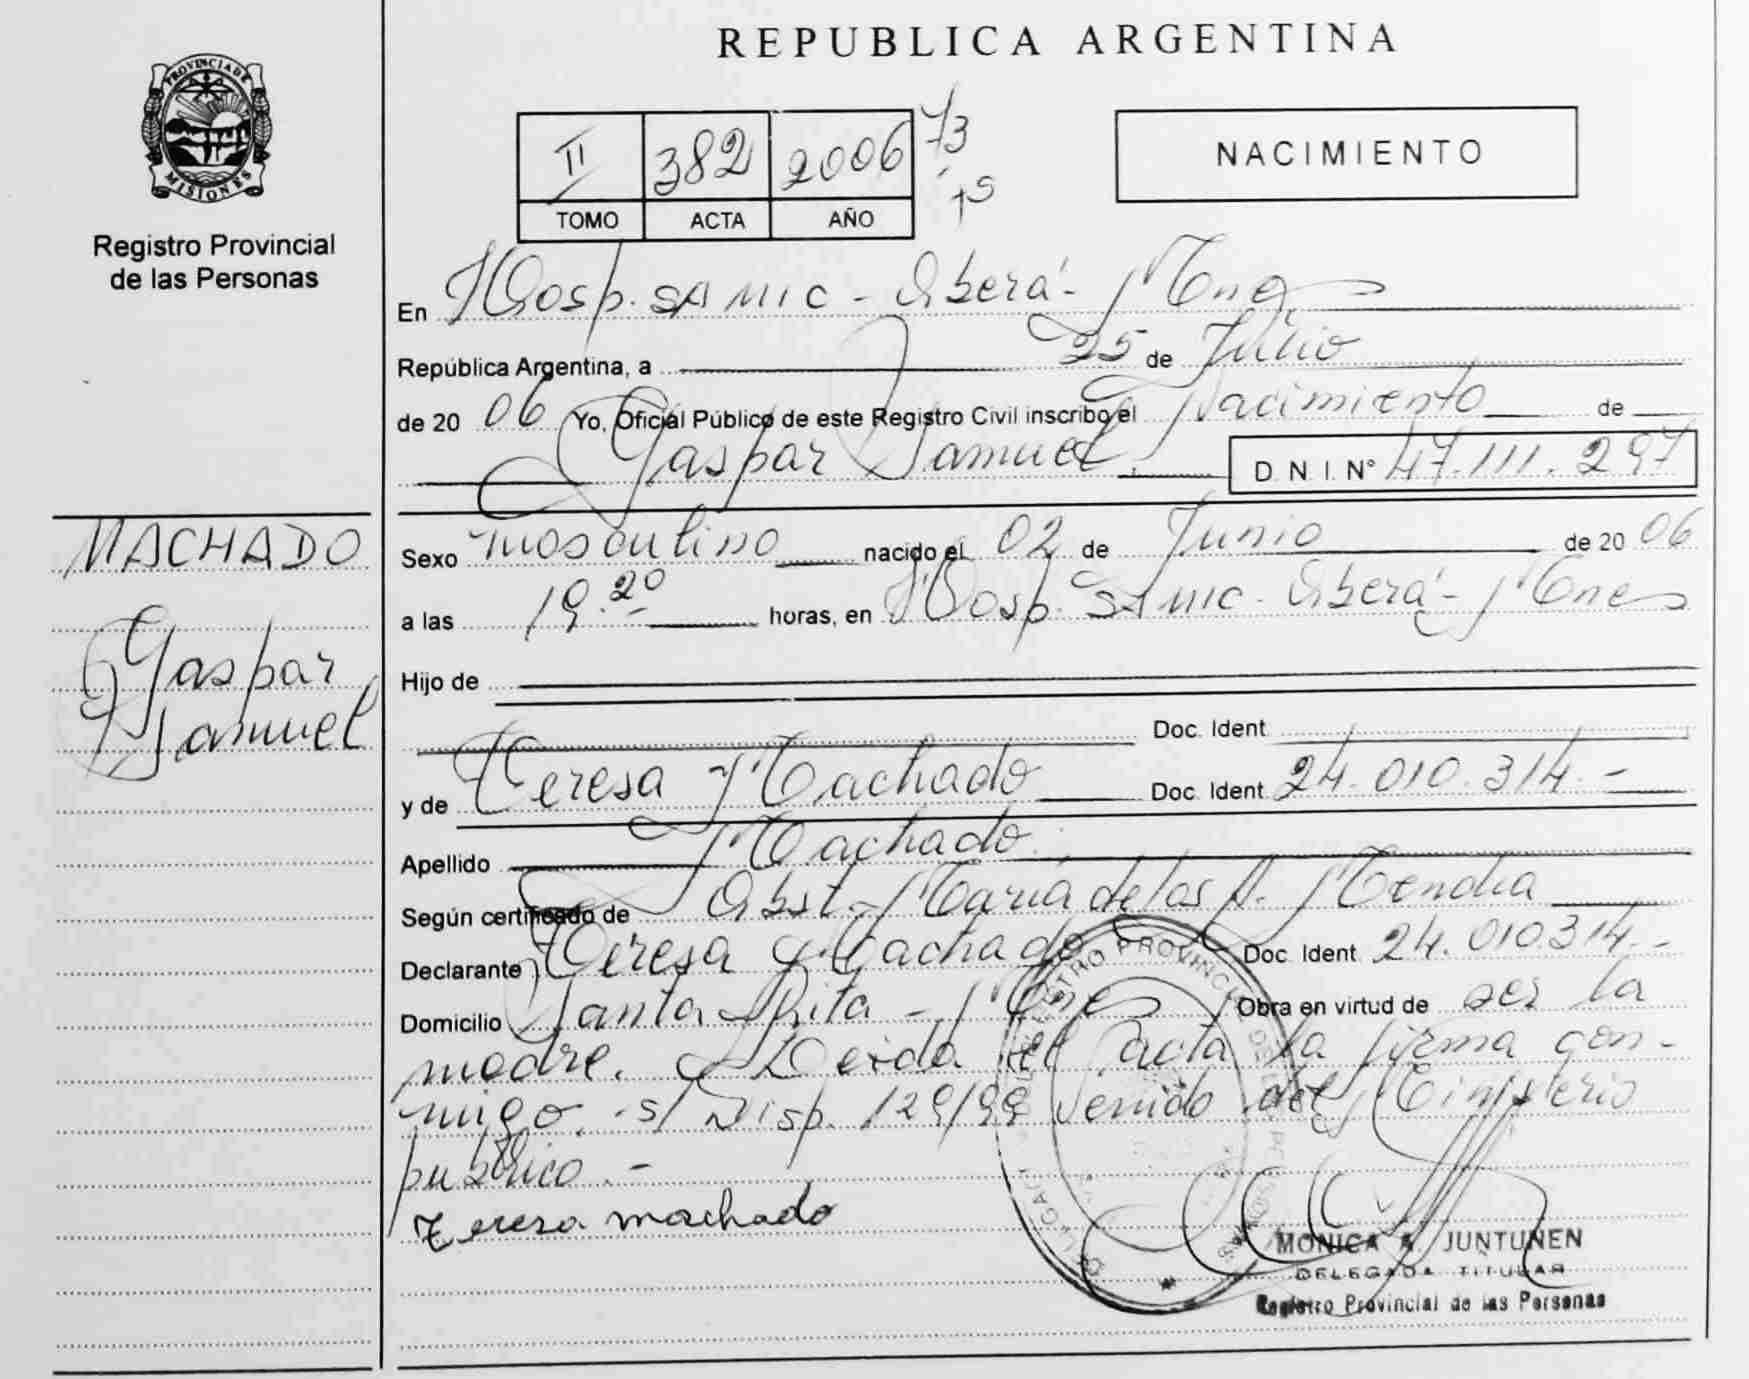 PROVINCIA DE
MISIONES
Registro Provincial
de las Personas
MACHADO
Gaspar
Samuel
REPUBLICA ARGENTINA
II 382 2006 73
TOMO ACTA AÑO 75
NACIMIENTO
En Hosp. SAMIC - Oberá - Mnes
República Argentina, a 25 de Julio
de 20 06 Yo, Oficial Público de este Registro Civil inscribo el Nacimiento de
Gaspar Samuel. D.N.I. N° 47.111.297
Sexo masculino nacido el 02 de Junio de 20 06
a las 19.20 horas, en Hosp. SAMIC - Oberá - Mnes
Hijo de
Doc. Ident.
y de Teresa Machado Doc. Ident. 24.010.314.-
Apellido Machado.
Según certificado de Obst. María de los A. Mendia
Declarante Teresa Machado Doc. Ident. 24.010.314.-
Domicilio Santa Rita - Mnes Obra en virtud de ser la
madre. Leída el acta la firma con-
migo. s/ Disp. 129/99 venido del Ministerio
público.-
Teresa machado
MONICA A. JUNTUNEN
DELEGADA TITULAR
Registro Provincial de las Personas